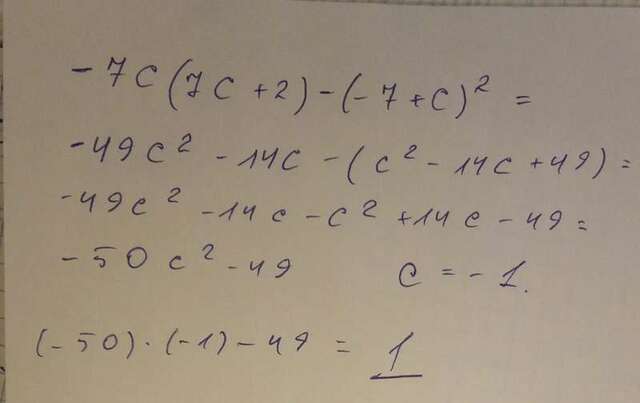 -7c(7c+2)-(-7+c)² =
-49c² -14c -(c² -14c +49) =
-49c² -14c -c² +14c -49 =
-50c² -49 c = -1.
(-50)·(-1)-49 = 1